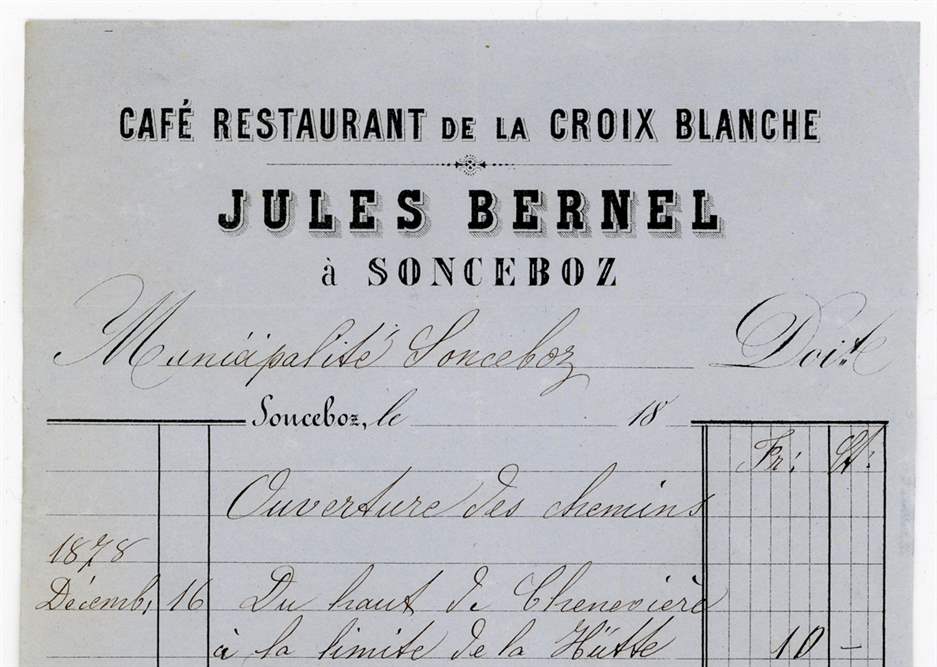 CAFÉ RESTAURANT DE LA CROIX BLANCHE
JULES BERNEL
à SONCEBOZ
Municipalité Sonceboz Doit
Sonceboz, le 18
Fr: Ct:
Ouverture des chemins
1878
Décemb, 16 Du haut de Chenevière
à la limite de la Hütte 10 —